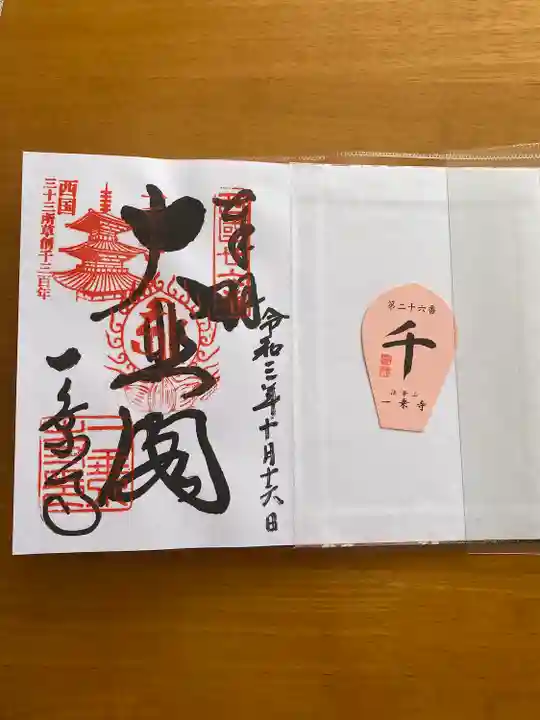 奉拝
令和三年十月十六日
大悲閣
一乗寺
西国
三十三所草創千三百年
第二十六番
千
法華山
一乗寺